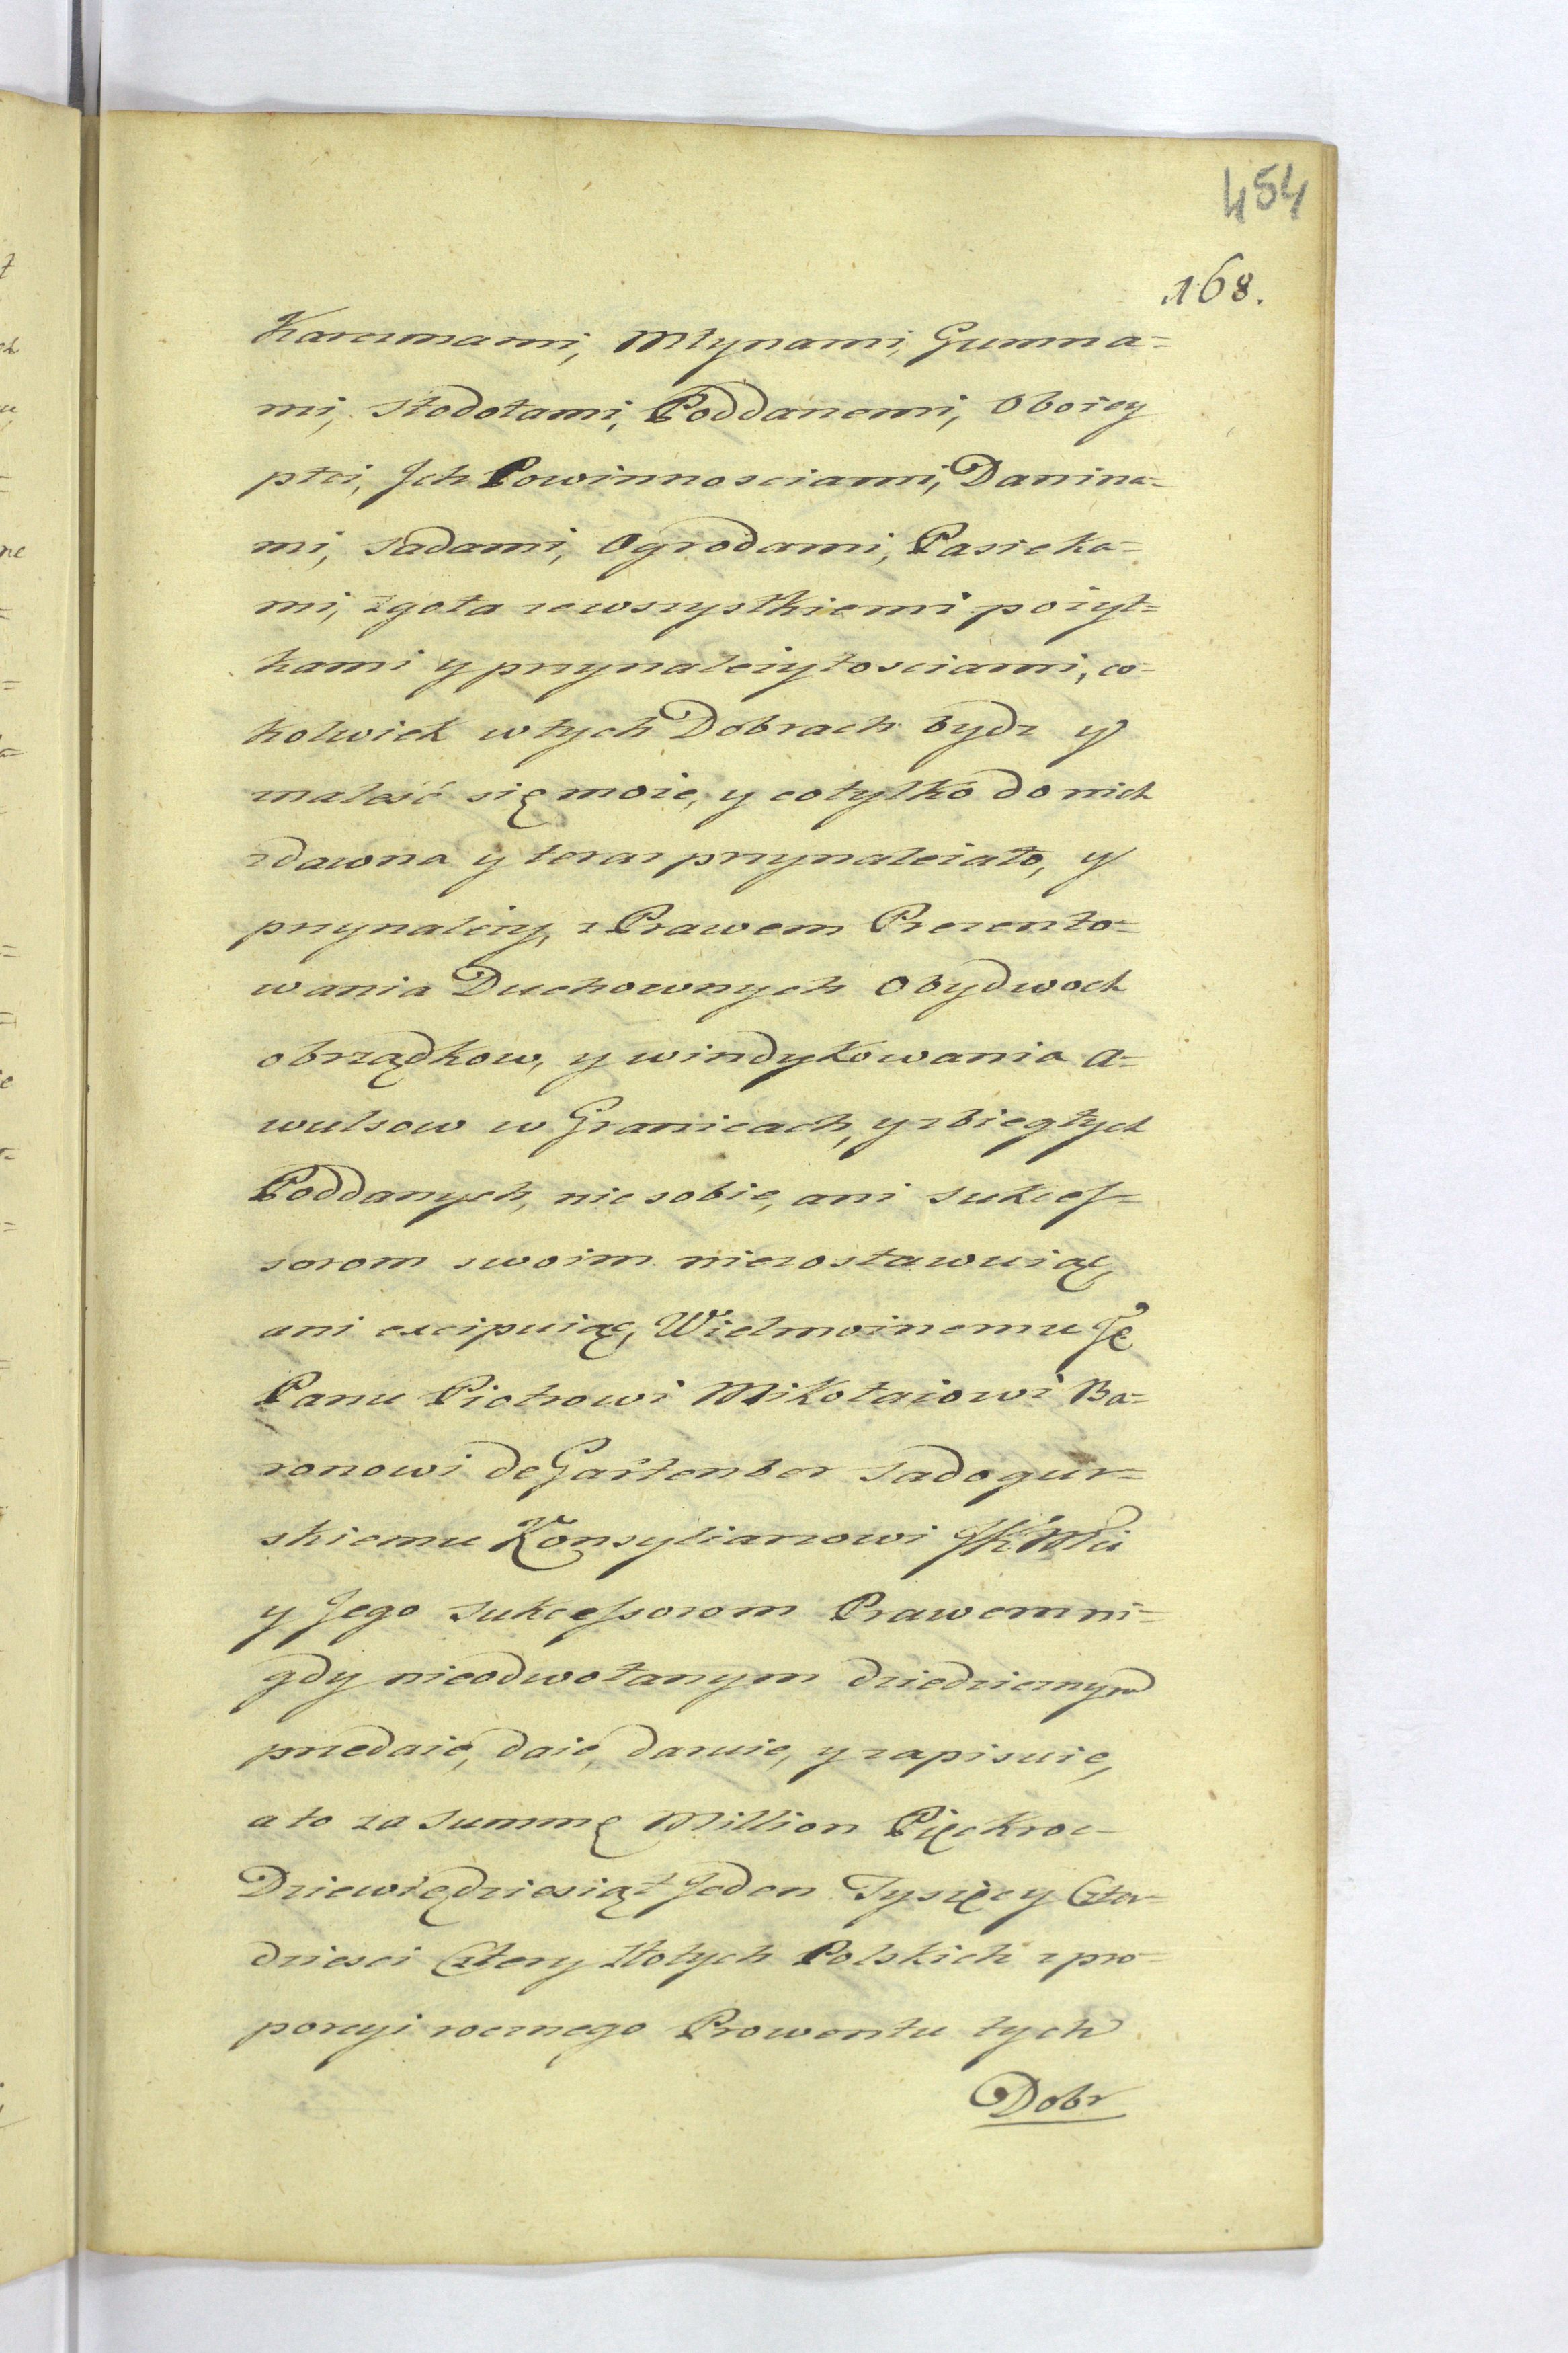 454
168.
Karczmami, Młynami, Gumna=
mi, Stodołami, Poddanemi, Oboiey
płci, Ich Powinnosciami, Danina=
mi, Sadami, Ogrodami, Pasieka=
mi, zgoła zewszystkiemi pożyt=
kami y przynależytosciami, co-
kolwiek w tych Dobrach bydz y
znaleść się może, y cotylko do nich
zdawna y teraz przynależało, y
przynależy, z Prawem Prezento=
wania Duchownych Obydwoch
obrządkow, y windykowania A=
wulsow w Granicach, y zbiegłych
Poddanych, nic sobie, ani Sukces=
sorom swoim niezostawuiąc,
ani excipuiąc, Wielmożnemu Jc
Panu Piotrowi Mikołaiowi Ba=
ronowi de Gartenber Sadogur=
skiemu Konsyliarzowi JK Mci
y Jego Sukcessorom Prawem ni=
gdy nieodwołanym dziedzicznym
przedaie, daie, daruie, y zapisuie,
a to za Summę Million Pięckroc
Dziewiędziesiąt Jeden Tysięcy Czter-
dziesci Cztery Złotych Polskich z pro-
porcyi rocznego Prowentu tych
Dobr